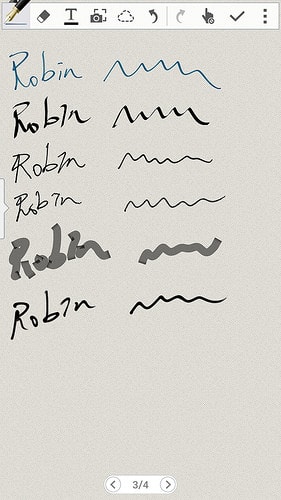 Robin
Robin
Robin
Robin
Robin
Robin
3/4